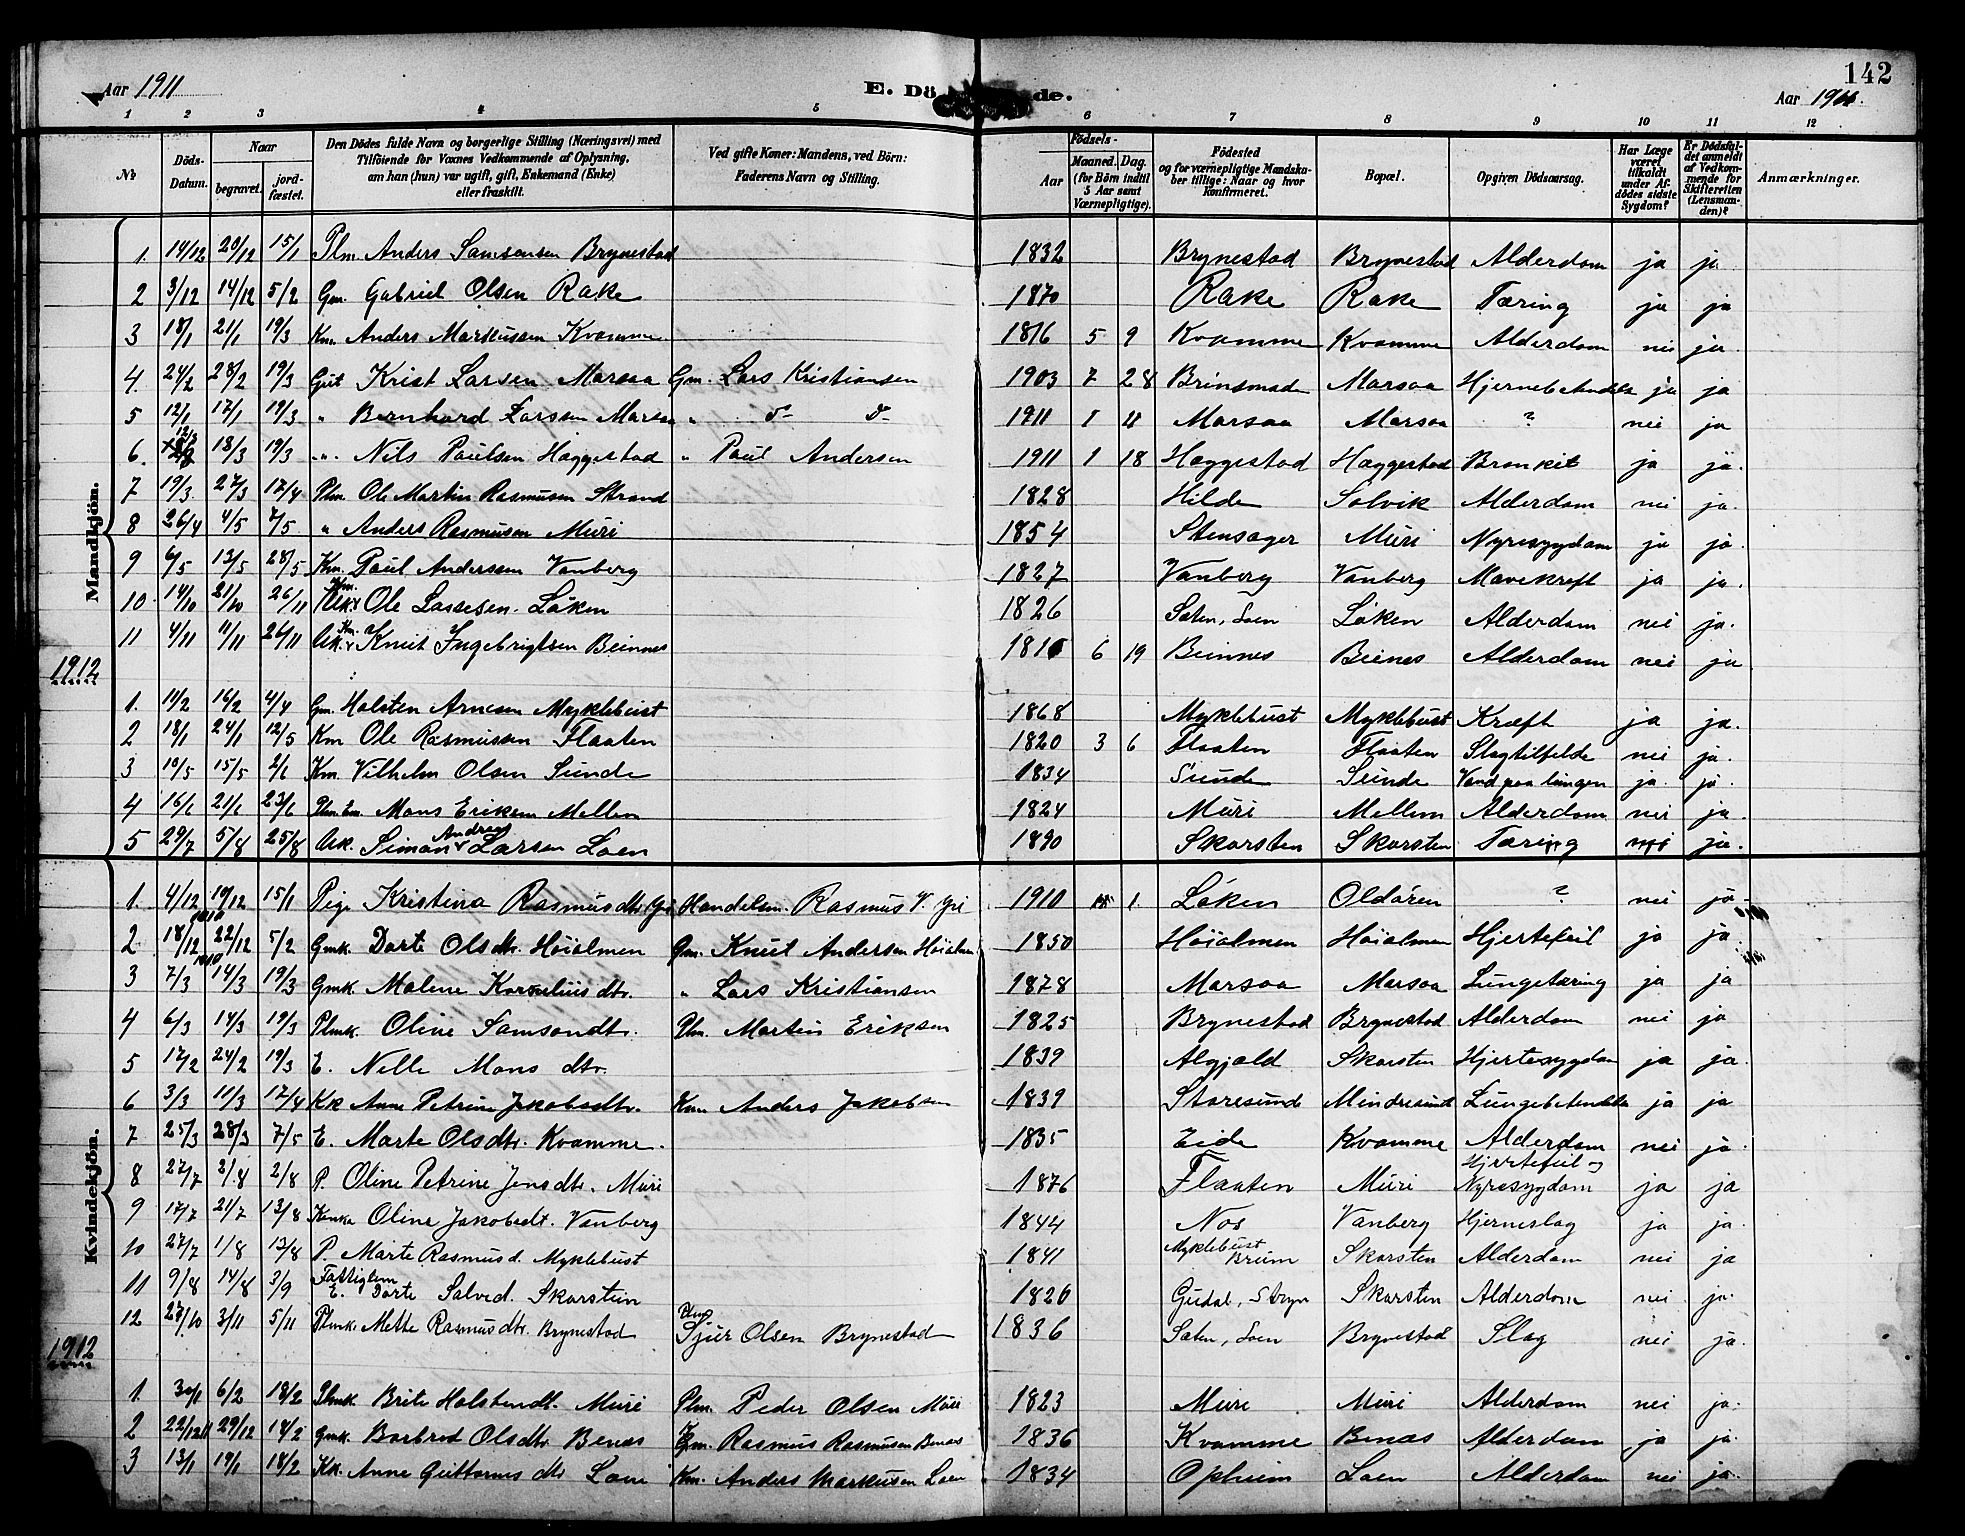 142
Aar 1911
E. Dö de.
Aar 19
1 2 3 4 5 6 7 8 9 10 11 12
No
Döds-Datum.
Naar
begravet.
jord-fæstet.
Den Dödes fulde Navn og borgerlige Stilling (Næringsvei) med
Tilföiende for Voxnes Vedkommende af Oplysning,
om han (hun) var ugift, gift, Enkemand (Enke)
eller fraskilt.
Ved gifte Koner: Mandens, ved Börn:
Faderens Navn og Stilling.
Födsels-
Aar
Maaned. Dag.
(for Börn indtil
5 Aar samt
Værnepligtige).
Födested
og for værnepligtige Mandska-
ber tillige: Naar og hvor
Konfirmeret.
Bopæl.
Opgiven Dödsaarsag.
Har Læge
været
tilkaldt
under Af-
dödes sidste
Sygdom?
Er Dödsfal-
det anmeldt
af Vedkom-
mende for
Skifteretten
(Lensman-
den)?
Anmærkninger.
Mandkjön.
1. 14/12 20/12 15/1 Plm. Anders Samsonsen Brynestad 1832 Brynestad Brynestad Alderdom ja ja
2 3/12 14/12 5/2 Gm. Gabriel Olsen Rake 1870 Rake Rake Tæring ja ja
3 18/1 21/1 19/3 Km. Anders Markussen Kvamme 1816 5 9 Kvamme Kvamme Alderdom nei ja.
4. 24/2 28/2 19/3 Gut Krist Larsen Marsaa Gm. Lars Kristiansen 1903 7 28 Marsaa ja ja
5 12/1 17/1 19/3 " Bernhard Larsen " d- d- 1911 1 Marsaa Marsaa ? nei ja
6. 18/3 19/3 " Nils Paulsen Haggestad " Paul Andersen 1911 1 18 Haggestad Haggestad Bronkit ja ja.
7 19/3 27/3 17/4 Plm. Ole Martin Rasmusen Strand 1828 Hilde Solvik Alderdom nei ja.
8 26/4 4/5 7/5 " Anders Rasmusen Muri 1854 Stensager Muri Nyresygdom ja ja.
9 6/5 13/5 28/5 Km. Paul Andersen Vanberg 1827 Vanberg Vanberg Mavekreft ja ja.
10. 14/10 21/10 26/11 Km. Ole Lassesen Löken 1826 Saten, Loen Löken Alderdom nei ja.
11 4/11 11/11 26/11 Km. Knut Ingebrigtsen Beinnes 6 19 Beinnes Beines Alderdom nei ja
1912
1. 11/2 16/2 4/4 Gm. Holsten Arnesen Myklebust 1868 Myklebust Myklebust Kræft ja ja.
2 18/1 24/1 12/5 Km Ole Rasmussen Flaaten 1820 3 6 Flaaten Flaaten Slagtilfelde nei ja.
3 10/5 15/5 2/6 Km. Vilhelm Olsen Sunde 1834 Sunde Sunde Vand paa lungen ja. ja.
4 16/6 21/6 23/6 Plm. Em. Mons Eriksen Mellem 1824 Muri Mellem Alderdom nei ja.
5 29/7 5/8 25/8 Uk. Simon Andreas Larsen Loen 1890 Skarsten Skarsten Tæring ja.
Kvindekjön.
1. 4/12 1910 10/12 15/1 Pige Kristina Rasmusdtr Gri Handelsm. Rasmus V. Gri 1910 1. Löken Oldören ? nei ja
2 18/12 1910 22/12 5/2 Gmk. Dorte Olsdtr. Höialmen Gm. Knut Andersen Höialmen 1850 Höialmen Höialmen Hjertefeil ja ja
3 7/3 14/3 19/3 Gmk. Malene Korneliusdtr. " Lars Kristiansen 1878 Marsaa Marsaa Lungetæring ja ja
4 6/3 14/3 19/3 Plmk. Oline Samsondtr. Plm. Martin Eriksen 1825 Brynestad Brynestad Alderdom nei ja
5 17/2 24/2 19/3 E. Nelle Mons dtr. 1839 Algjald Skarsten Hjertesygdom ja ja.
6 3/3 11/3 17/4 Kk Anne Petrine Jakobsdtr. Km. Anders Jakobsen 1839 Storesunde Mindresunde ja ja
7 25/3 28/3 7/5 E. Marte Olsdtr. Kvamme. 1835 Eide Kvamme Alderdom nei ja
8 27/7 2/8 2/8 P. Oline Petrine Jensdtr. Muri 1876 Flaaten Muri Hjertefeil og Nyresygdom ja ja
9 17/7 21/7 13/8 Oline Jakobsdt. Vanberg 1844 Nos Vanberg Hjerneslag ja ja.
10 27/7 1/8 13/8 P. Marte Rasmusd. Myklebust 1841 Myklebust Breim Skarsten Alderdom nei ja
11 9/8 14/8 3/9 Fattiglem E. Dorte Salved. Skarstein 1820 Gudal, Stryn Skarsten Alderdom nei ja.
12 27/10 3/11 5/11 Plmk. Mette Rasmusdtr. Brynestad Plm. Sjur Olsen Brynestad 1836 Saten, Loen Brynestad Slag nei ja.
1912
1. 30/1 6/2 18/2 Plmk. Brite Holstendt. Muri Plm. Peder Olsen Muri 1823 Muri Muri Alderdom nei ja.
2 29/12 18/2 Gmk. Barbrod Olsdtr Benæs Gm. Rasmus Rasmusen Benæs 1836 Kvamme Benæs Alderdom ja ja.
3 13/1 19/1 18/2 Kk. Anne Guttorms dtr Loen Km. Anders Markusen Loen 1834 Opheim Loen Alderdom nei ja.